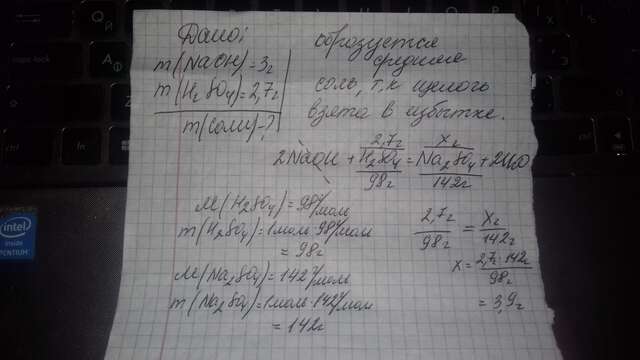 Дано:
m(NaOH)=3г
m(H₂SO₄)=2,7г
m(соли)-?
образуется
средняя
соль, т.к щелочь
взята в избытке.
2,7г xг
2NaOH + H₂SO₄ = Na₂SO₄ + 2H₂O
98г 142г
M(H₂SO₄)=98г/моль
m(H₂SO₄)=1моль·98г/моль
= 98г
M(Na₂SO₄)=142г/моль
m(Na₂SO₄)=1моль·142г/моль
= 142г
2,7г/98г = xг/142г
x = 2,7г·142г/98г
= 3,9г
intel
inside
PENTIUM